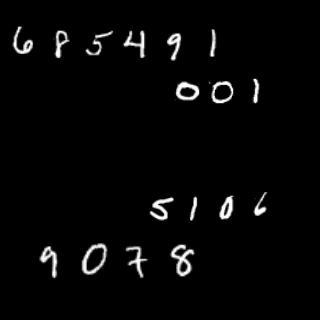 685491
001
5106
9078